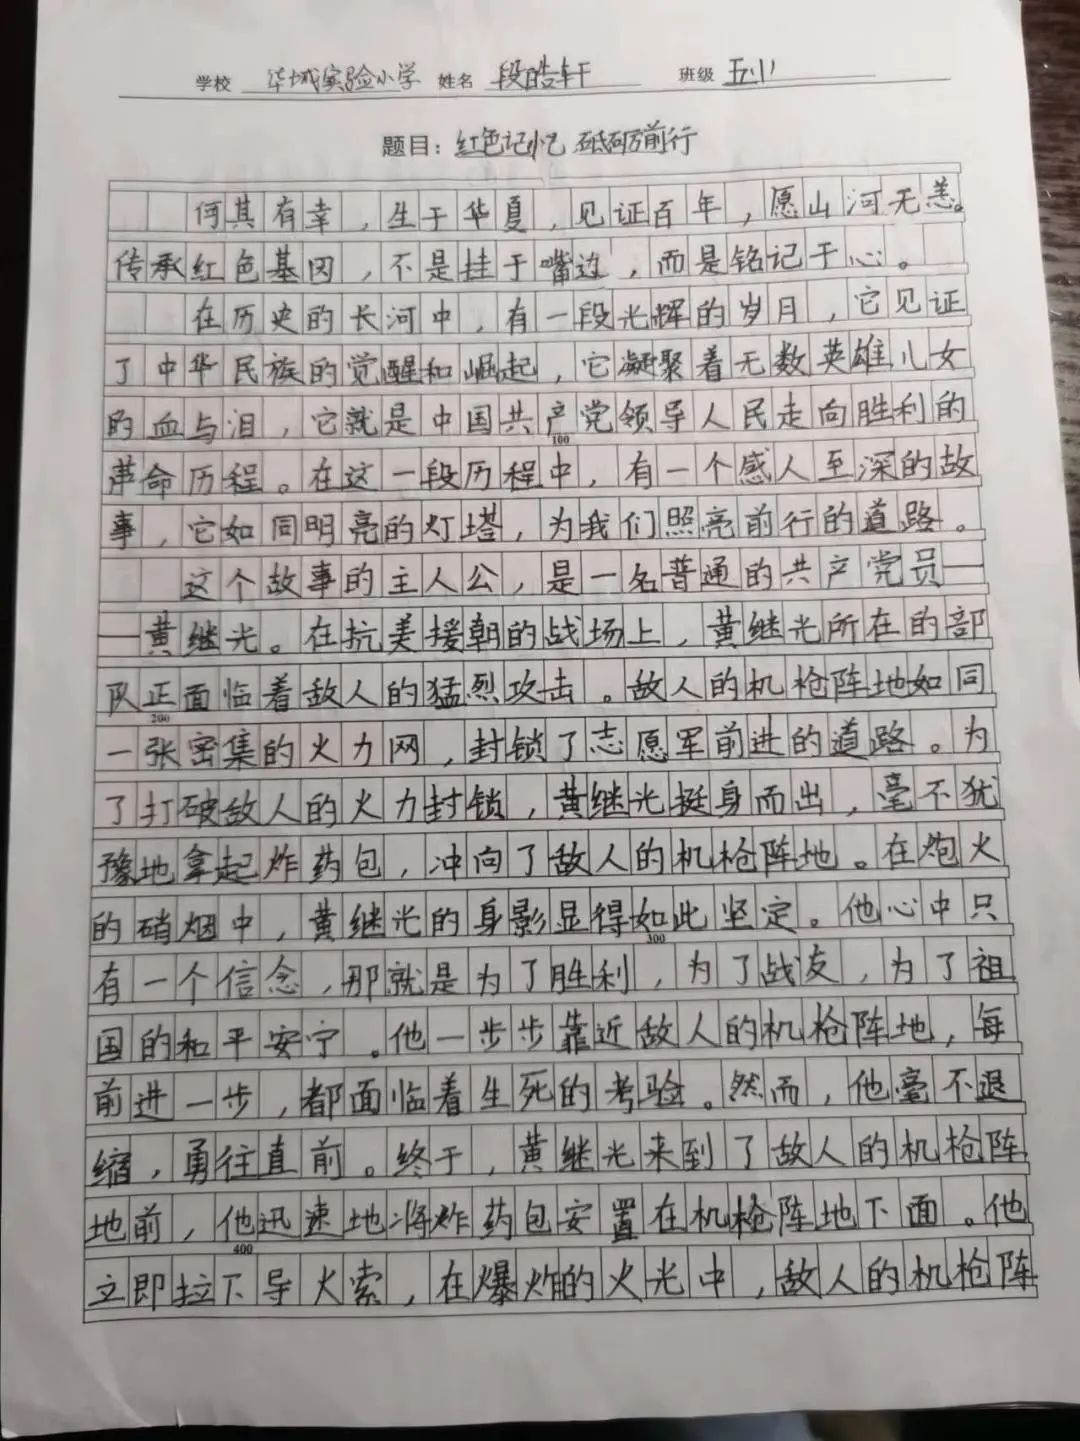 学校 华城实验小学 姓名 段皓轩 班级 五(1)
题目：红色记忆 砥砺前行
何其有幸，生于华夏，见证百年，愿山河无恙。
传承红色基因，不是挂于嘴边，而是铭记于心。
在历史的长河中，有一段光辉的岁月，它见证
了中华民族的觉醒和崛起，它凝聚着无数英雄儿女
的血与泪，它就是中国共产党领导人民走向胜利的
100
革命历程。在这一段历程中，有一个感人至深的故
事，它如同明亮的灯塔，为我们照亮前行的道路。
这个故事的主人公，是一名普通的共产党员—
—黄继光。在抗美援朝的战场上，黄继光所在的部
队正面临着敌人的猛烈攻击。敌人的机枪阵地如同
200
一张密集的火力网，封锁了志愿军前进的道路。为
了打破敌人的火力封锁，黄继光挺身而出，毫不犹
豫地拿起炸药包，冲向了敌人的机枪阵地。在炮火
的硝烟中，黄继光的身影显得如此坚定。他心中只
300
有一个信念，那就是为了胜利，为了战友，为了祖
国的和平安宁。他一步步靠近敌人的机枪阵地，每
前进一步，都面临着生死的考验。然而，他毫不退
缩，勇往直前。终于，黄继光来到了敌人的机枪阵
地前，他迅速地将炸药包安置在机枪阵地下面。他
400
立即拉下导火索，在爆炸的火光中，敌人的机枪阵